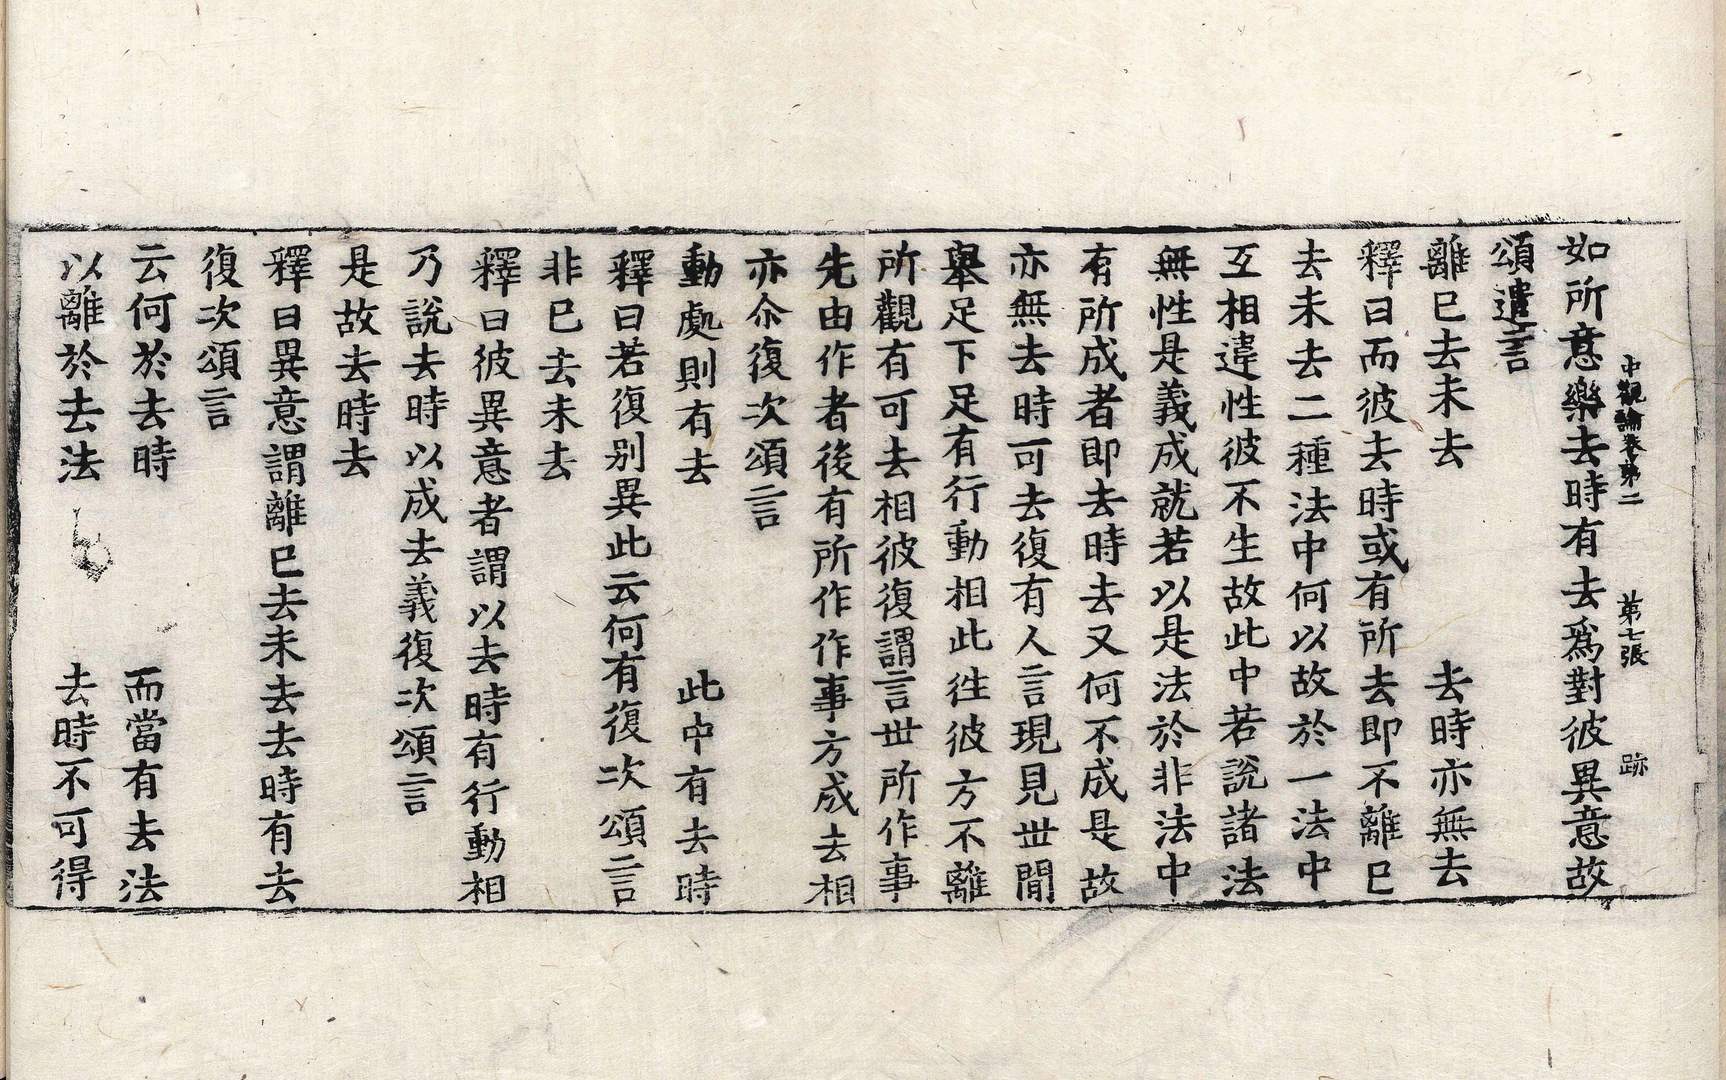 中觀論卷第二　第七張　跡
如所意樂去時有去爲對彼異意故
頌遣言
離已去未去　去時亦無去
釋曰而彼去時或有所去即不離已
去未去二種法中何以故於一法中
互相違性彼不生故此中若說諸法
無性是義成就若以是法於非法中
有所成者即去時去又何不成是故
亦無去時可去復有人言現見世間
舉足下足有行動相此徃彼方不離
所觀有可去相彼復謂言世所作事
先由作者後有所作作事方成去相
亦尒復次頌言
動處則有去　此中有去時
釋曰若復別異此云何有復次頌言
非已去未去
釋曰彼異意者謂以去時有行動相
乃說去時以成去義復次頌言
是故去時去
釋曰異意謂離已去未去去時有去
復次頌言
云何於去時　而當有去法
以離於去法　去時不可得